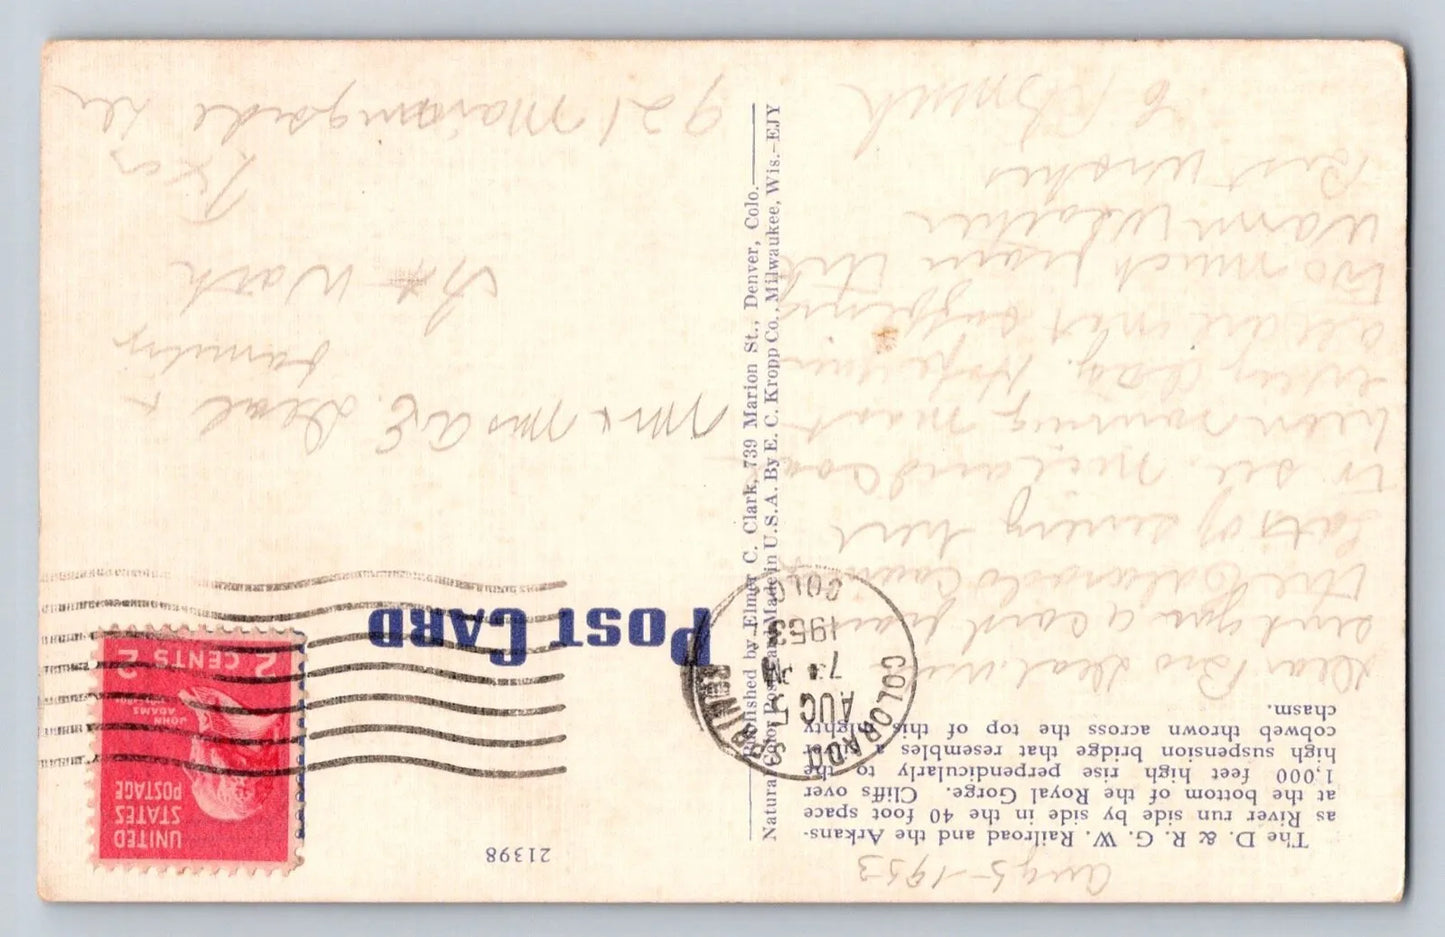 Aug 5-1953
The D. & R. G. W. Railroad and the Arkans-
as River run side by side in the 40 foot space
at the bottom of the Royal Gorge. Cliffs over
1,000 feet high rise perpendicularly to the
high suspension bridge that resembles a
cobweb thrown across the top of this mighty
chasm.
Dear Bro Deal
sent you a card from
the Colorado
Lots of scenery here
to see. Nice and cool
been
every day. Hope you
all are not suffering
to much from the
warm weather
Best wishes
Published by Elmer C. Clark, 739 Marion St., Denver, Colo.
Natural Color Post Card Made in U.S.A. By E. C. Kropp Co., Milwaukee, Wis.—EJY
21398
POST CARD
COLORADO SPRINGS
AUG 5
7 PM
1953
COLO
UNITED
STATES
POSTAGE
JOHN
ADAMS
2 CENTS 2
Mr & Mrs A.E. Deal &
family
Ft Worth
Tex
921